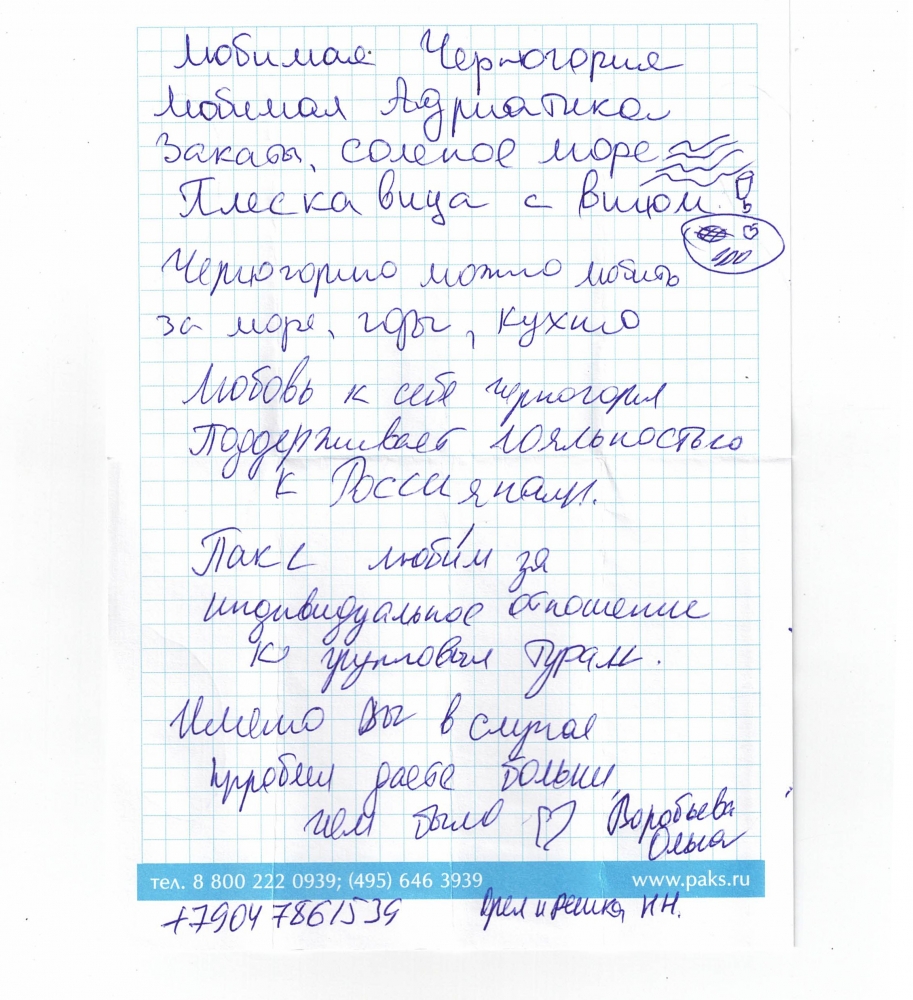 Любимая Черногория
Любимая Адриатика
Закаты, соленое море
Плескавица с вином!
Черногорию можно любить
за море, горы, кухню
Любовь к себе черногория
Поддерживает лояльностью
к Россиянам.
Пакс любим за
индивидуальное отношение
к групповым турам.
Именно Вы в случае
проблем даете больше,
чем было
Воробьева
Ольга
тел. 8 800 222 0939; (495) 646 3939 www.paks.ru
+79047861539 Орел и решка, НН.